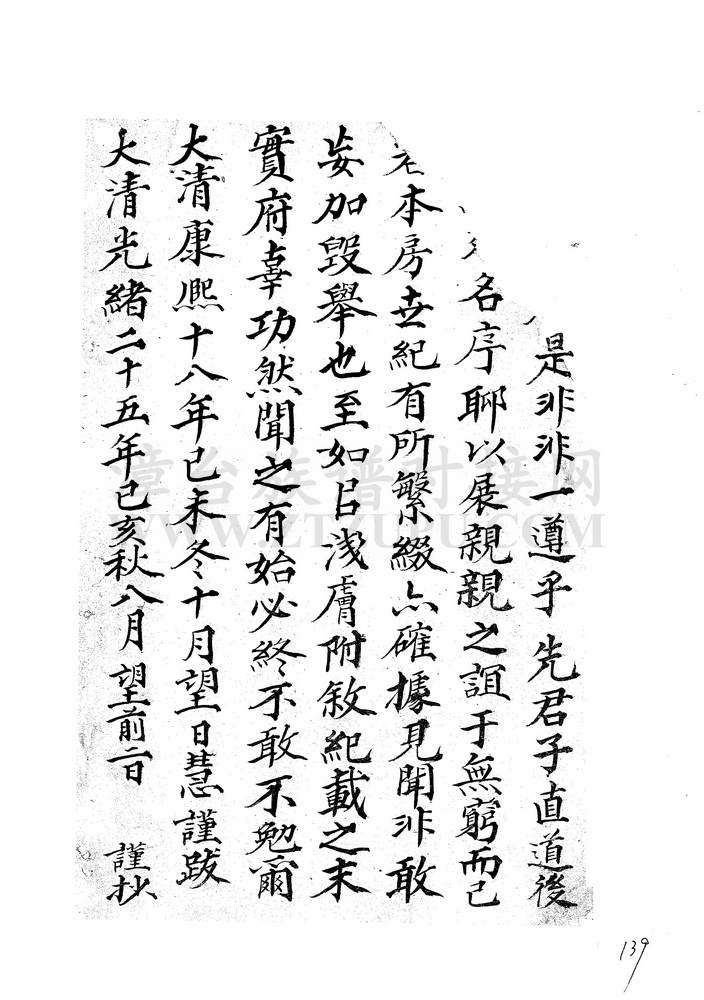 是非非一遵乎先君子直道後
名序聊以展親親之誼于無窮而已
本房世紀有所繁綴亦確據見聞非敢
妄加毀舉也至如㠯淺膚附敘紀載之末
實府辜功然聞之有始必終不敢不勉爾
大清康熙十八年己未冬十月望日慧謹跋
大清光緒二十五年己亥秋八月望前二日 謹抄
漳台族谱对接网
WWW.ZTZUPU.COM
139